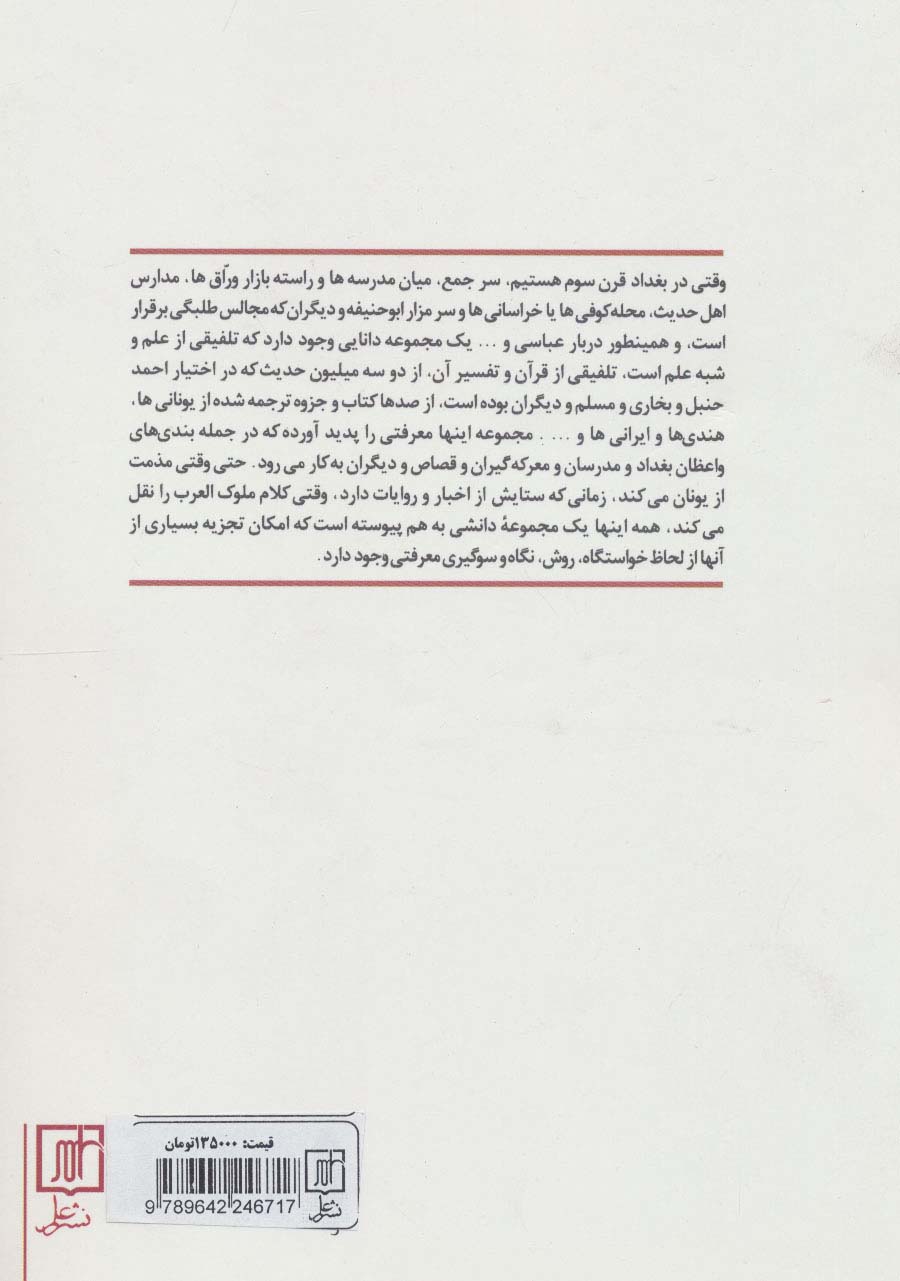 وقتی در بغداد قرن سوم هستیم، سر جمع، میان مدرسه ها و راسته بازار ورّاق ها، مدارس
اهل حدیث، محله کوفی ها یا خراسانی ها و سر مزار ابوحنیفه و دیگران که مجالس طلبگی برقرار
است، و همینطور دربار عباسی و ... یک مجموعه دانایی وجود دارد که تلفیقی از علم و
شبه علم است، تلفیقی از قرآن و تفسیر آن، از دو سه میلیون حدیث که در اختیار احمد
حنبل و بخاری و مسلم و دیگران بوده است، از صدها کتاب و جزوه ترجمه شده از یونانی ها،
هندی‌ها و ایرانی ها و ... . مجموعه اینها معرفتی را پدید آورده که در جمله بندی‌های
واعظان بغداد و مدرسان و معرکه گیران و قصاص و دیگران به کار می رود. حتی وقتی مذمت
از یونان می کند، زمانی که ستایش از اخبار و روایات دارد، وقتی کلام ملوک العرب را نقل
می کند، همه اینها یک مجموعۀ دانشی به هم پیوسته است که امکان تجزیه بسیاری از
آنها از لحاظ خواستگاه، روش، نگاه و سوگیری معرفتی وجود دارد.
قیمت: ۱۳۵۰۰۰تومان
9 789642 246717
نشر علم
نشر علم